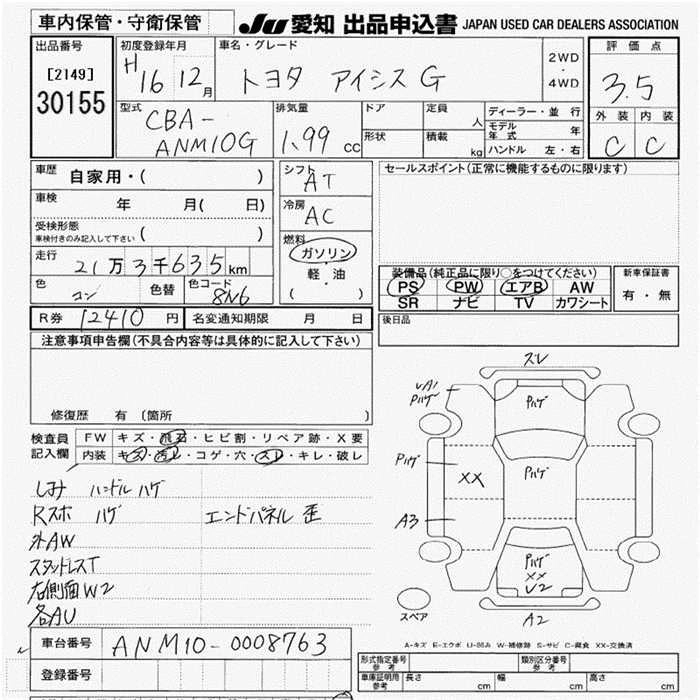 車内保管・守衛保管
JU 愛知 出品申込書 JAPAN USED CAR DEALERS ASSOCIATION
出品番号
[2149]
30155
初度登録年月
H 16 12月
車名・グレード
トヨタ アイシス G
2WD
・
4WD
評価点
3.5
外装 内装
C C
型式
CBA-
ANM10G
排気量
1.99 cc
ドア
定員 人
形状
積載 kg
ディーラー・並行
モデル年式 年
ハンドル 左・右
車歴 自家用・( )
車検 年 月( 日)
受検形態
車検付きのみ記入して下さい ( )
走行 21万3千635km
色 コン 色替 色コード 8N6
シフト AT
冷房 AC
燃料
ガソリン
・
軽・油
( )
セールスポイント(正常に機能するものに限ります)
装備品(純正品に限り○をつけてください)
PS PW エアB AW
SR ナビ TV カワシート
新車保証書
有・無
R券 12410 円 名変通知期限 月 日
後日品
注意事項申告欄(不具合内容等は具体的に記入して下さい)
修復歴 有 〔箇所 〕
検査員記入欄
FW キズ・飛石・ヒビ割・リペア跡・X要
内装 キズ・汚レ・コゲ・穴・スレ・キレ・破レ
しみ ハンドル ハゲ
Rスポ ハゲ エンドパネル 歪
外AW
スタッドレスT
右側面W2
各AU
スレ
UA1
Pハゲ
Pハゲ
Pハゲ
Pハゲ
XX
A3
Pハゲ
XX
U2
A2
スペア
A-キズ E-エクボ U-凹み W-補修跡 S-サビ C-腐食 XX-交換済
車台番号 ANM10-0008763
登録番号
形式指定番号 参考
類別区分番号 参考
車庫証明用 参考 長さ cm 幅 cm 高さ cm